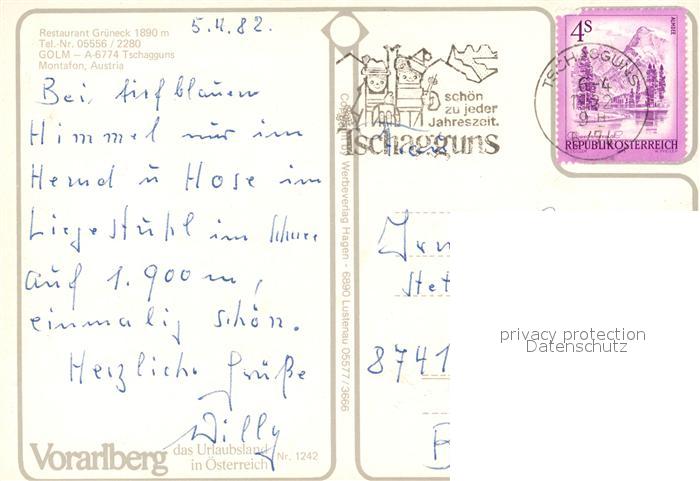 5.4.82.
Restaurant Grüneck 1890 m
Tel.-Nr. 05556 / 2280
GOLM – A-6774 Tschagguns
Montafon, Austria
Bei tiefblauem
Himmel nur im
Hemd u Hose im
Liegestuhl im Schnee
auf 1.900 m,
einmalig schön.
Herzliche Grüße
Willy
Vorarlberg das Urlaubsland
in Österreich
Nr. 1242
Werbeverlag Hagen - 6890 Lustenau 05577/3666
schön
zu jeder
Jahreszeit.
Tschagguns
4S
ALMSEE
REPUBLIK ÖSTERREICH
TSCHAGGUNS
8741
privacy protection
Datenschutz